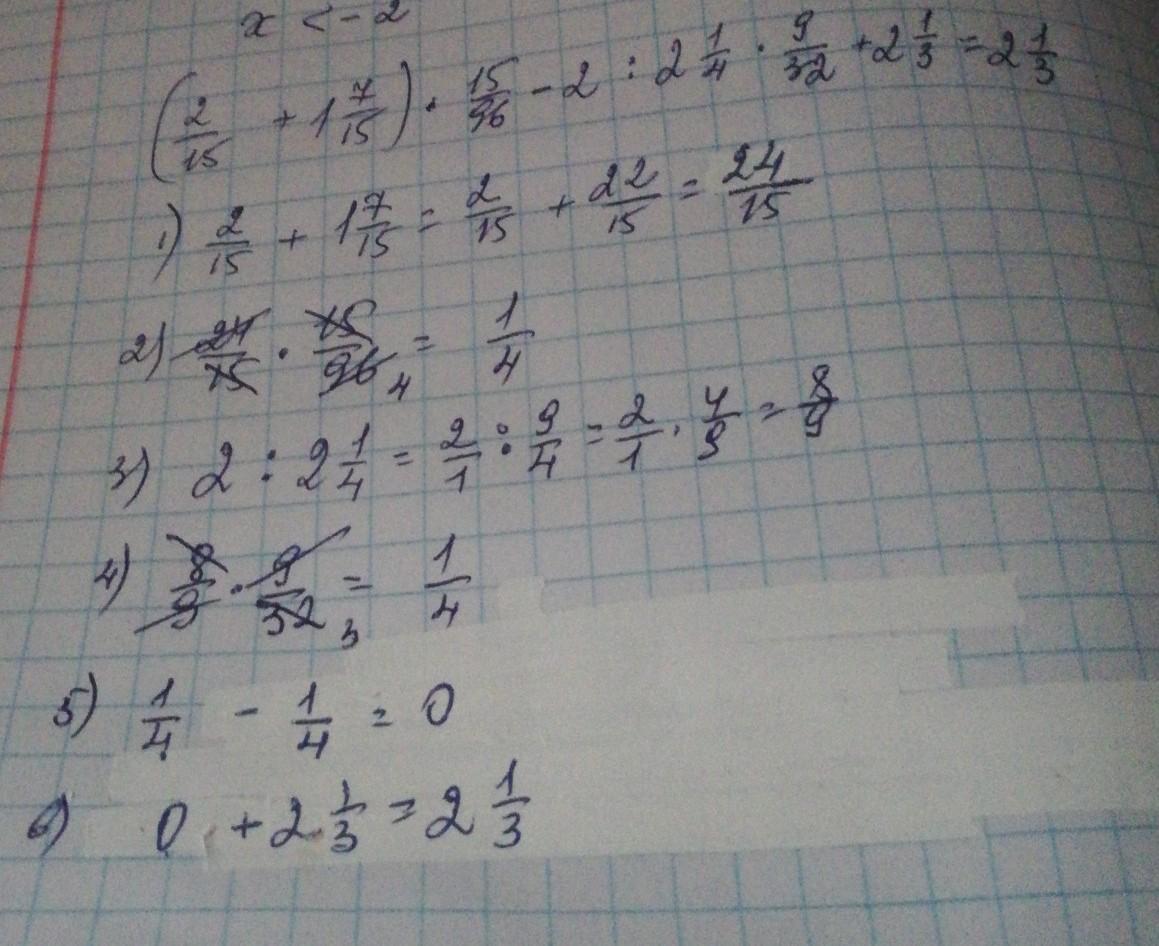 x < -2
(2/15 + 1 7/15) · 15/96 - 2 : 2 1/4 · 9/32 + 2 1/3 = 2 1/3
1) 2/15 + 1 7/15 = 2/15 + 22/15 = 24/15
2) 24/15 · 15/96 4 = 1/4
3) 2 : 2 1/4 = 2/1 : 9/4 = 2/1 · 4/9 = 8/9
4) 8/9 · 9/32 3 = 1/4
5) 1/4 - 1/4 = 0
6) 0 + 2 1/3 = 2 1/3